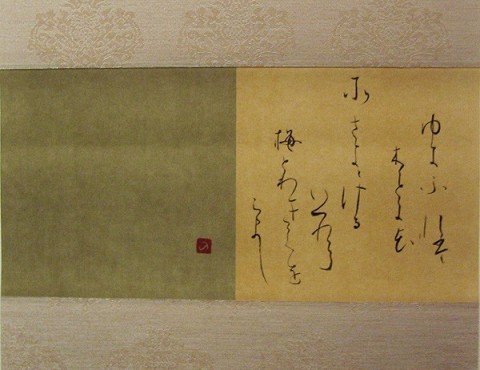 ゆきふれは
木ことに花
所さきにける
いつれを
梅とわきてを
らまし